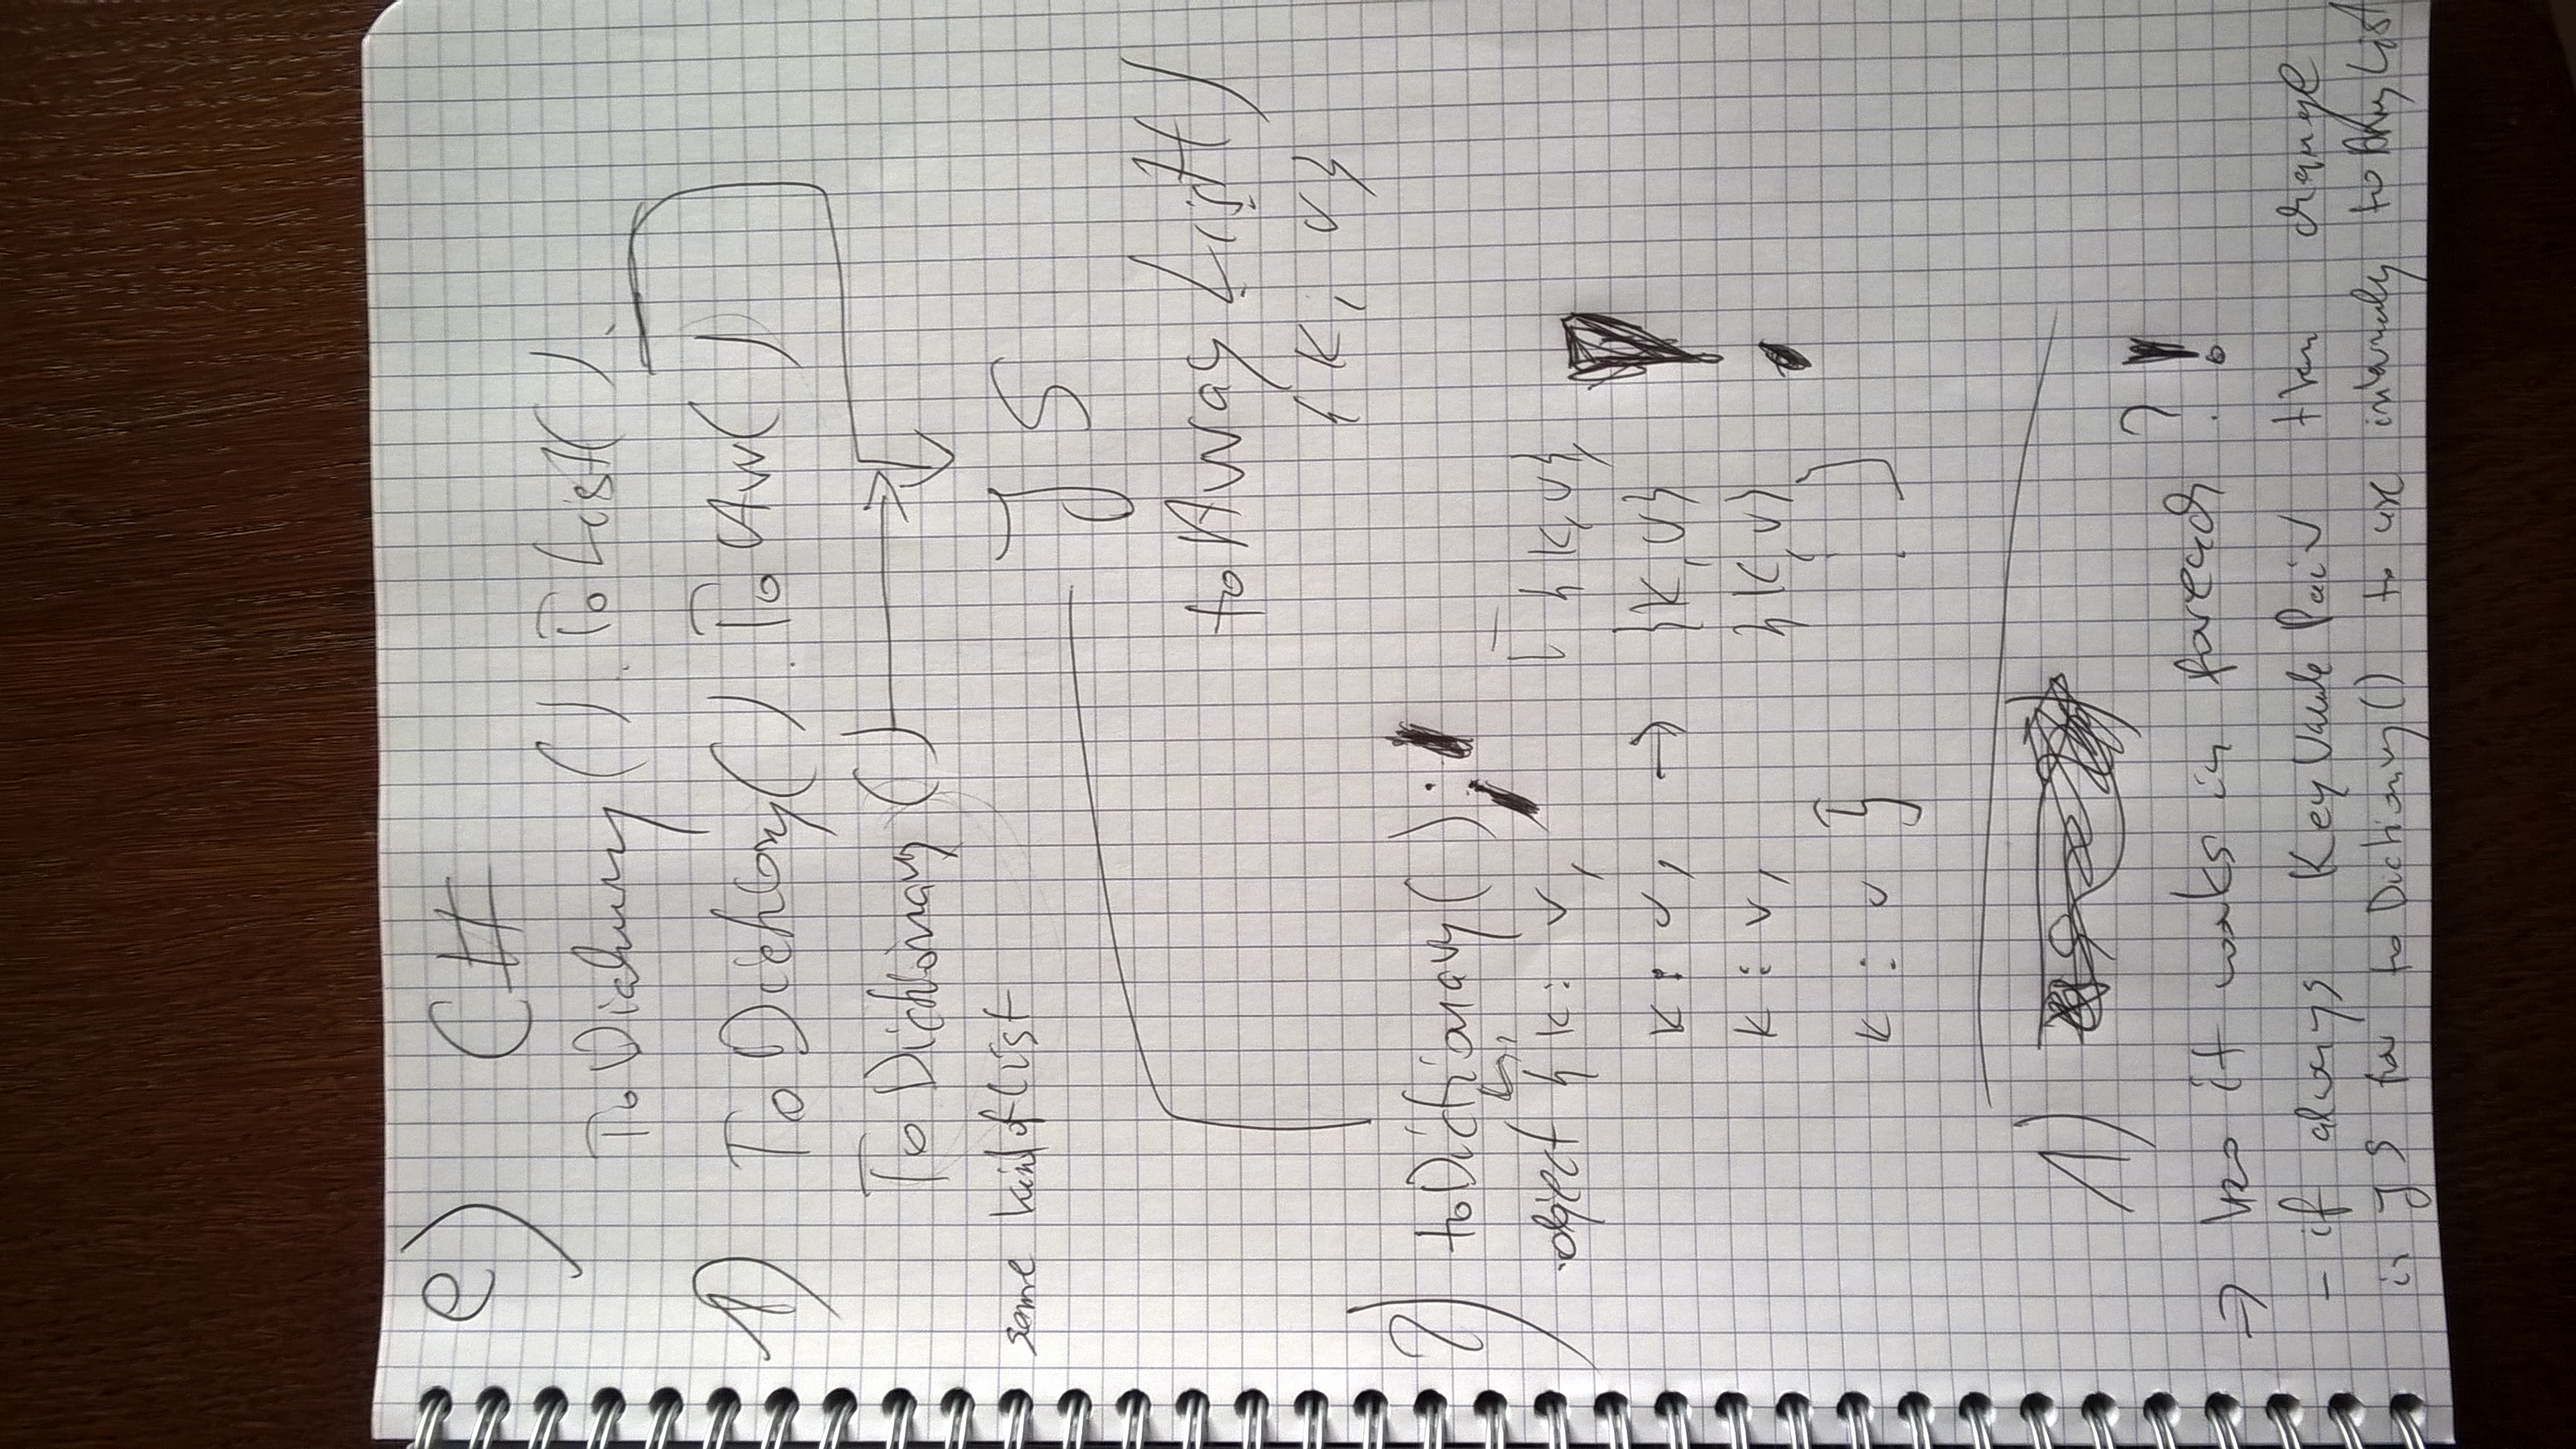 e) C#
ToDictionary().ToList().
1) ToDictionary().ToArr()
ToDictionary()
some kind of list
JS
toArrayList()
{k, v}
2) toDictionary();
object {k: v, [{k,v},
k: v, → {k,v}
k: v, {k,v}
k: v } ]
1)
⇒ it works in foreach ?!
- if always KeyValuePair then change
in JS for toDictionary() to use internaly toArrayList